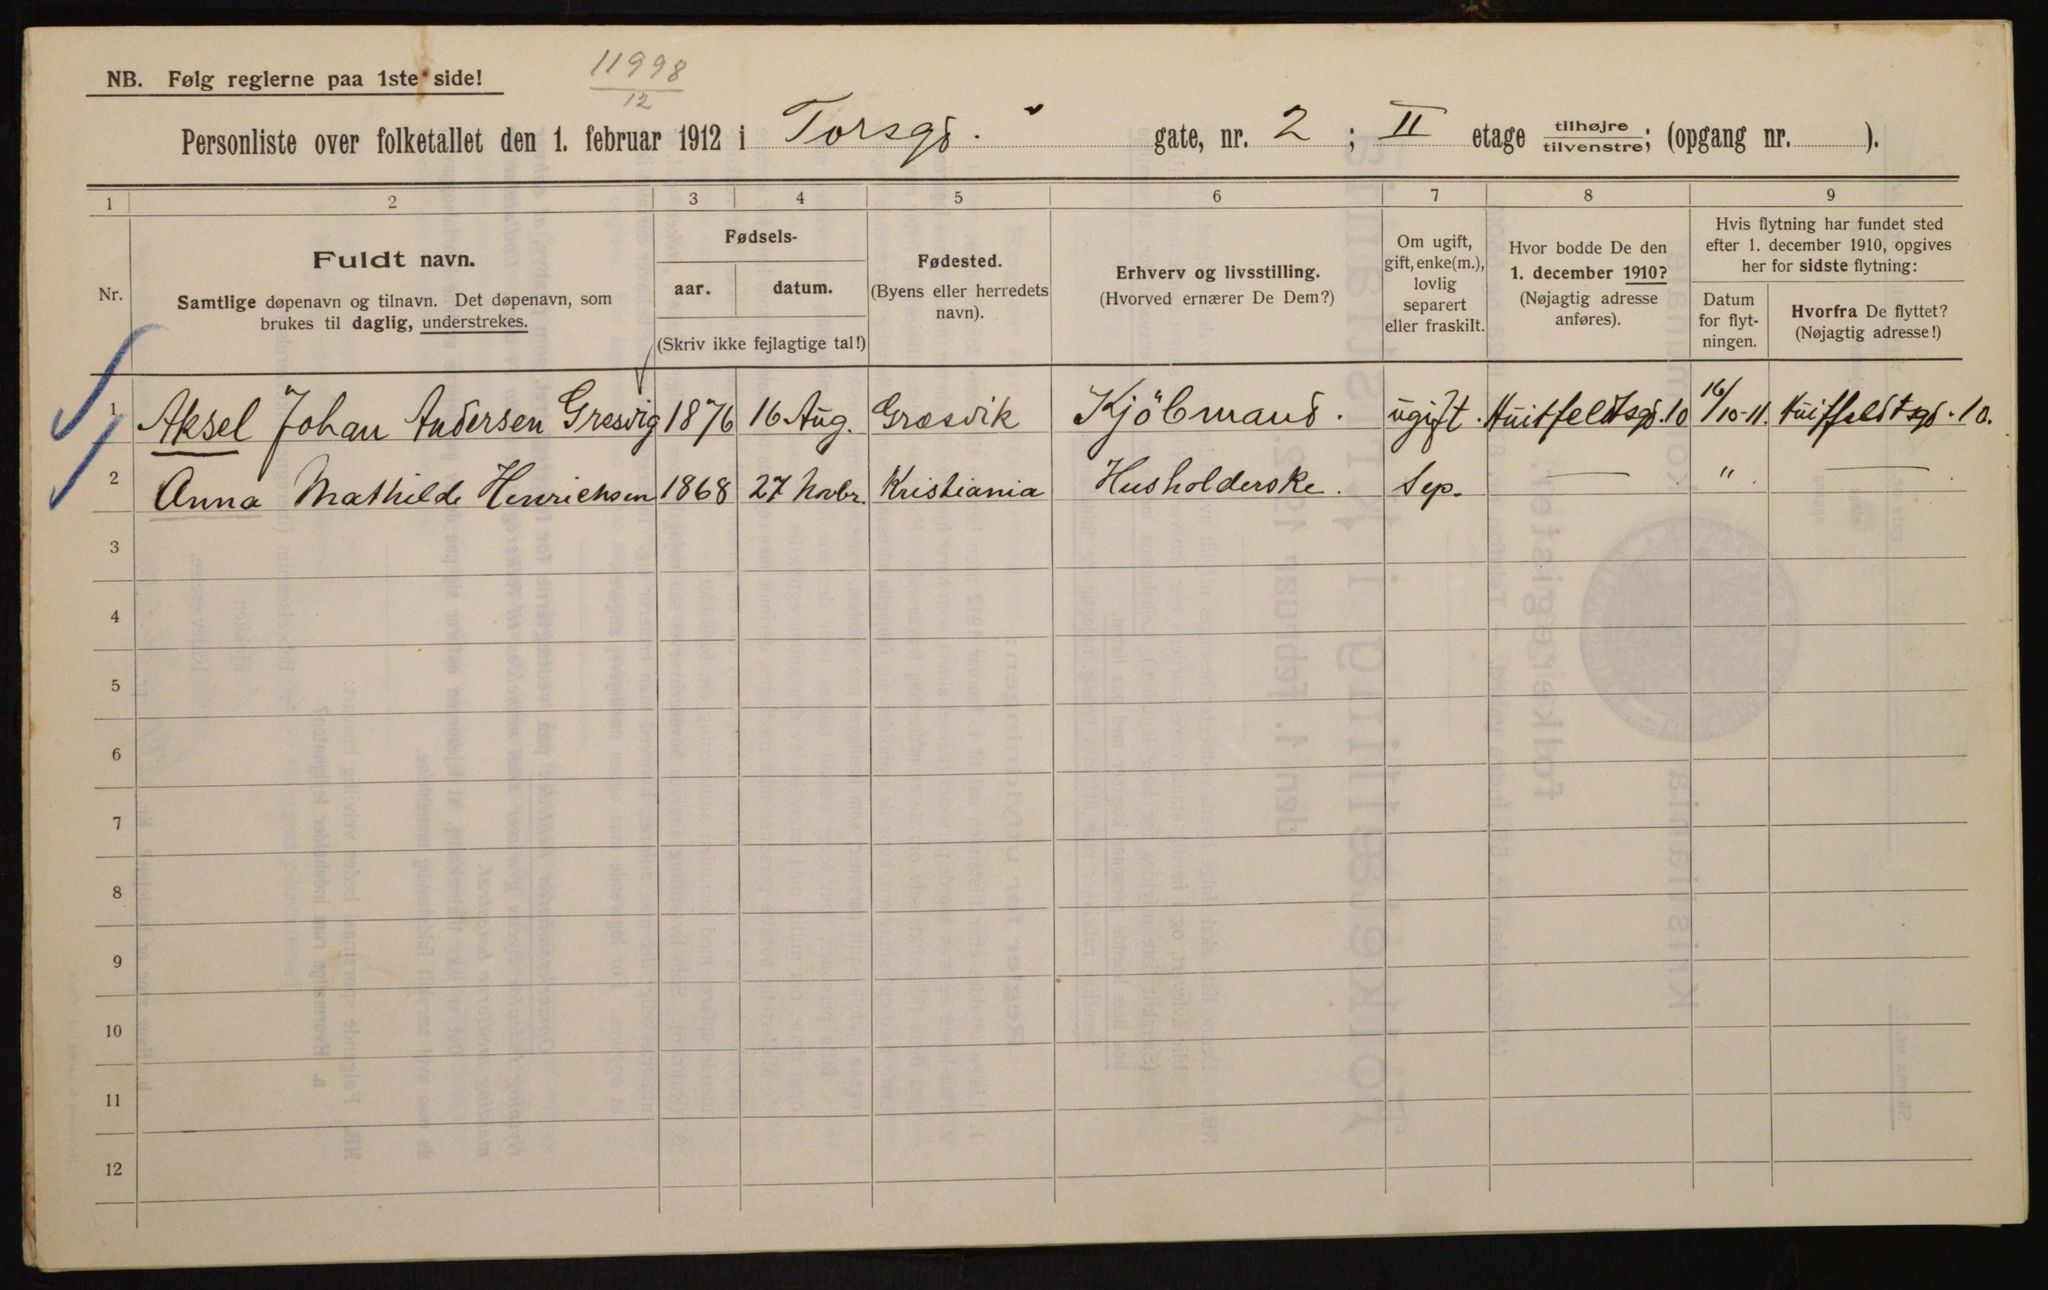 NB. Følg reglerne paa 1ste side!
11998
12
Personliste over folketallet den 1. februar 1912 i Torsgd. gate, nr. 2 ; II etage tilhøjre tilvenstre; (opgang nr. ).
1 2 3 4 5 6 7 8 9
Nr.
Fuldt navn.
Samtlige døpenavn og tilnavn. Det døpenavn, som
brukes til daglig, understrekes.
Fødsels-
aar. datum.
(Skriv ikke fejlagtige tal!)
Fødested.
(Byens eller herredets
navn).
Erhverv og livsstilling.
(Hvorved ernærer De Dem?)
Om ugift,
gift, enke(m.),
lovlig
separert
eller fraskilt.
Hvor bodde De den
1. december 1910?
(Nøjagtig adresse
anføres).
Hvis flytning har fundet sted
efter 1. december 1910, opgives
her for sidste flytning:
Datum
for flyt-
ningen.
Hvorfra De flyttet?
(Nøjagtig adresse!)
1 Aksel Johan Andersen Gresvig 1876 16 Aug. Græsvik Kjöbmand. ugift. Huitfeldtsgd. 10 16/10-11. Huitfeldtsgd. 10.
2 Anna Mathilde Henrichsen 1868 27 Novbr. Kristiania Husholderske. Sep. — " —
3
4
5
6
7
8
9
10
11
12